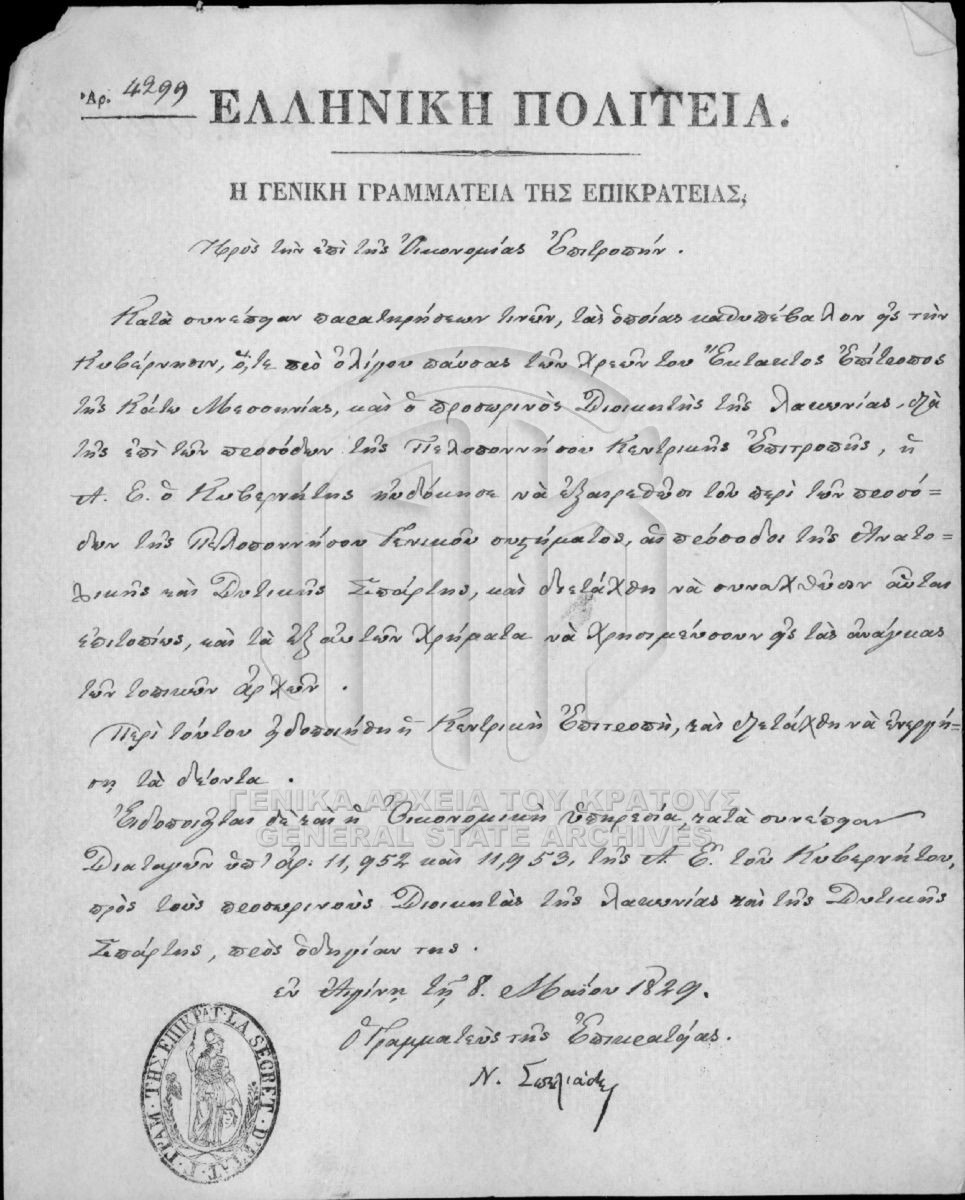 Ἀρ. 4299
ΕΛΛΗΝΙΚΗ ΠΟΛΙΤΕΙΑ.
Η ΓΕΝΙΚΗ ΓΡΑΜΜΑΤΕΙΑ ΤΗΣ ΕΠΙΚΡΑΤΕΙΑΣ,
Πρὸς τὴν ἐπὶ τῆς Οἰκονομίας Ἐπιτροπήν.
Κατὰ συνέπειαν παρατηρήσεων τινῶν, τὰς ὁποίας καθυπέβαλον εἰς τὴν
Κυβέρνησιν, ὅ,τε πρὸ ὀλίγου παύσας τῶν χρεῶν του Ἔκτακτος Ἐπίτροπος
τῆς Κάτω Μεσσηνίας, καὶ ὁ προσωρινὸς Διοικητὴς τῆς Λακωνίας διὰ
τῆς ἐπὶ τῶν προσόδων τῆς Πελοποννήσου Κεντρικῆς Ἐπιτροπῆς, ἡ
Α. Ε. ὁ Κυβερνήτης ηὐδόκησε νὰ ἐξαιρεθῶσι τοῦ περὶ τῶν προσό=
δων τῆς Πελοποννήσου Γενικοῦ συστήματος, αἱ πρόσοδοι τῆς Ἀνατο=
λικῆς καὶ Δυτικῆς Σπάρτης, καὶ διετάχθη νὰ συναχθῶσιν αὗται
ἐπιτοπίως, καὶ τὰ ἐξ αὐτῶν χρήματα νὰ χρησιμεύσουν εἰς τὰς ἀνάγκας
τῶν τοπικῶν ἀρχῶν.
Περὶ τούτου εἰδοποιήθη ἡ Κεντρικὴ Ἐπιτροπὴ, καὶ διετάχθη νὰ ἐνεργή=
ση τὰ δέοντα.
Εἰδοποιεῖται δὲ καὶ ἡ Οἰκονομικὴ ὑπηρεσία κατὰ συνέπειαν
Διαταγῶν ὑπ' ἀρ: 11,952 καὶ 11,953, τῆς Α. Ε. τοῦ Κυβερνήτου,
πρὸς τοὺς προσωρινοὺς Διοικητὰς τῆς Λακωνίας καὶ τῆς Δυτικῆς
Σπάρτης, πρὸς ὁδηγίαν της.
ἐν Αἰγίνῃ τῇ 8. Μαΐου 1829.
Ὁ Γραμματεὺς τῆς Ἐπικρατείας.
Ν. Σπηλιάδης
Γ. ΓΡΑΜ. ΤΗΣ ΕΠΙΚΡΑΤ. LA SECRET. D'ETAT
ΓΕΝΙΚΑ ΑΡΧΕΙΑ ΤΟΥ ΚΡΑΤΟΥΣ
GENERAL STATE ARCHIVES